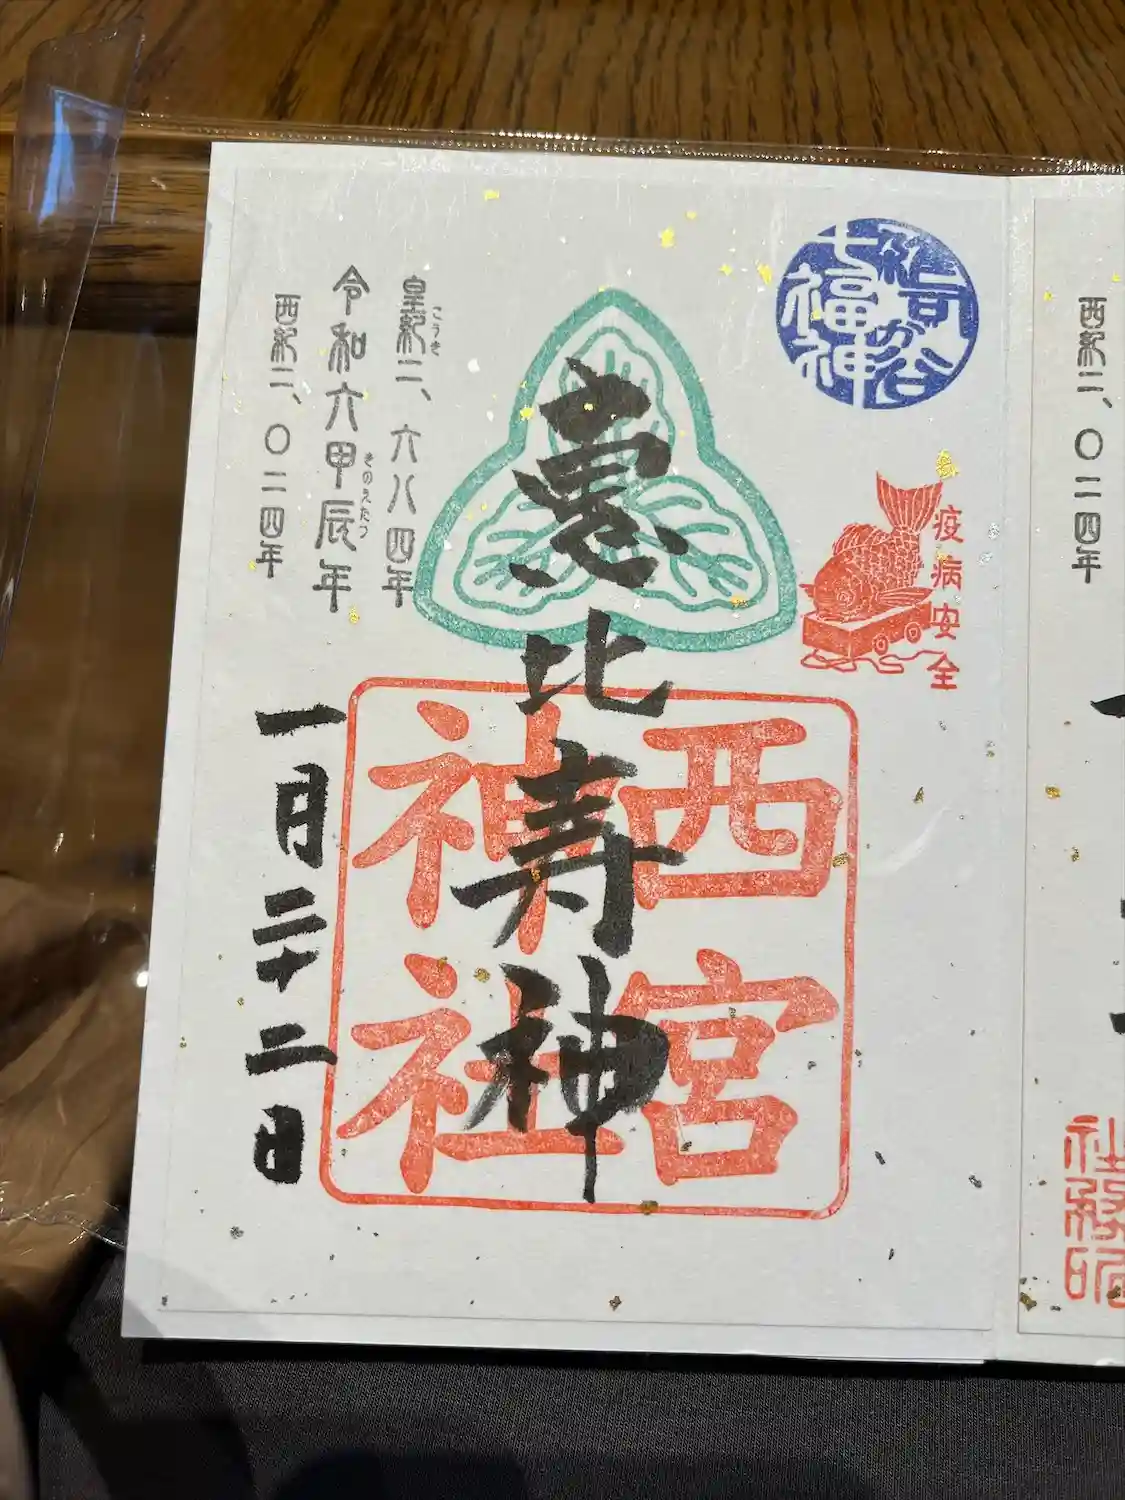 西紀二、〇二四年
雑司が谷
七福神
疫病安全
恵比寿神
西宮
神社
皇紀二、六八四年
こうき
令和六甲辰年
きのえたつ
西紀二、〇二四年
一月二十二日